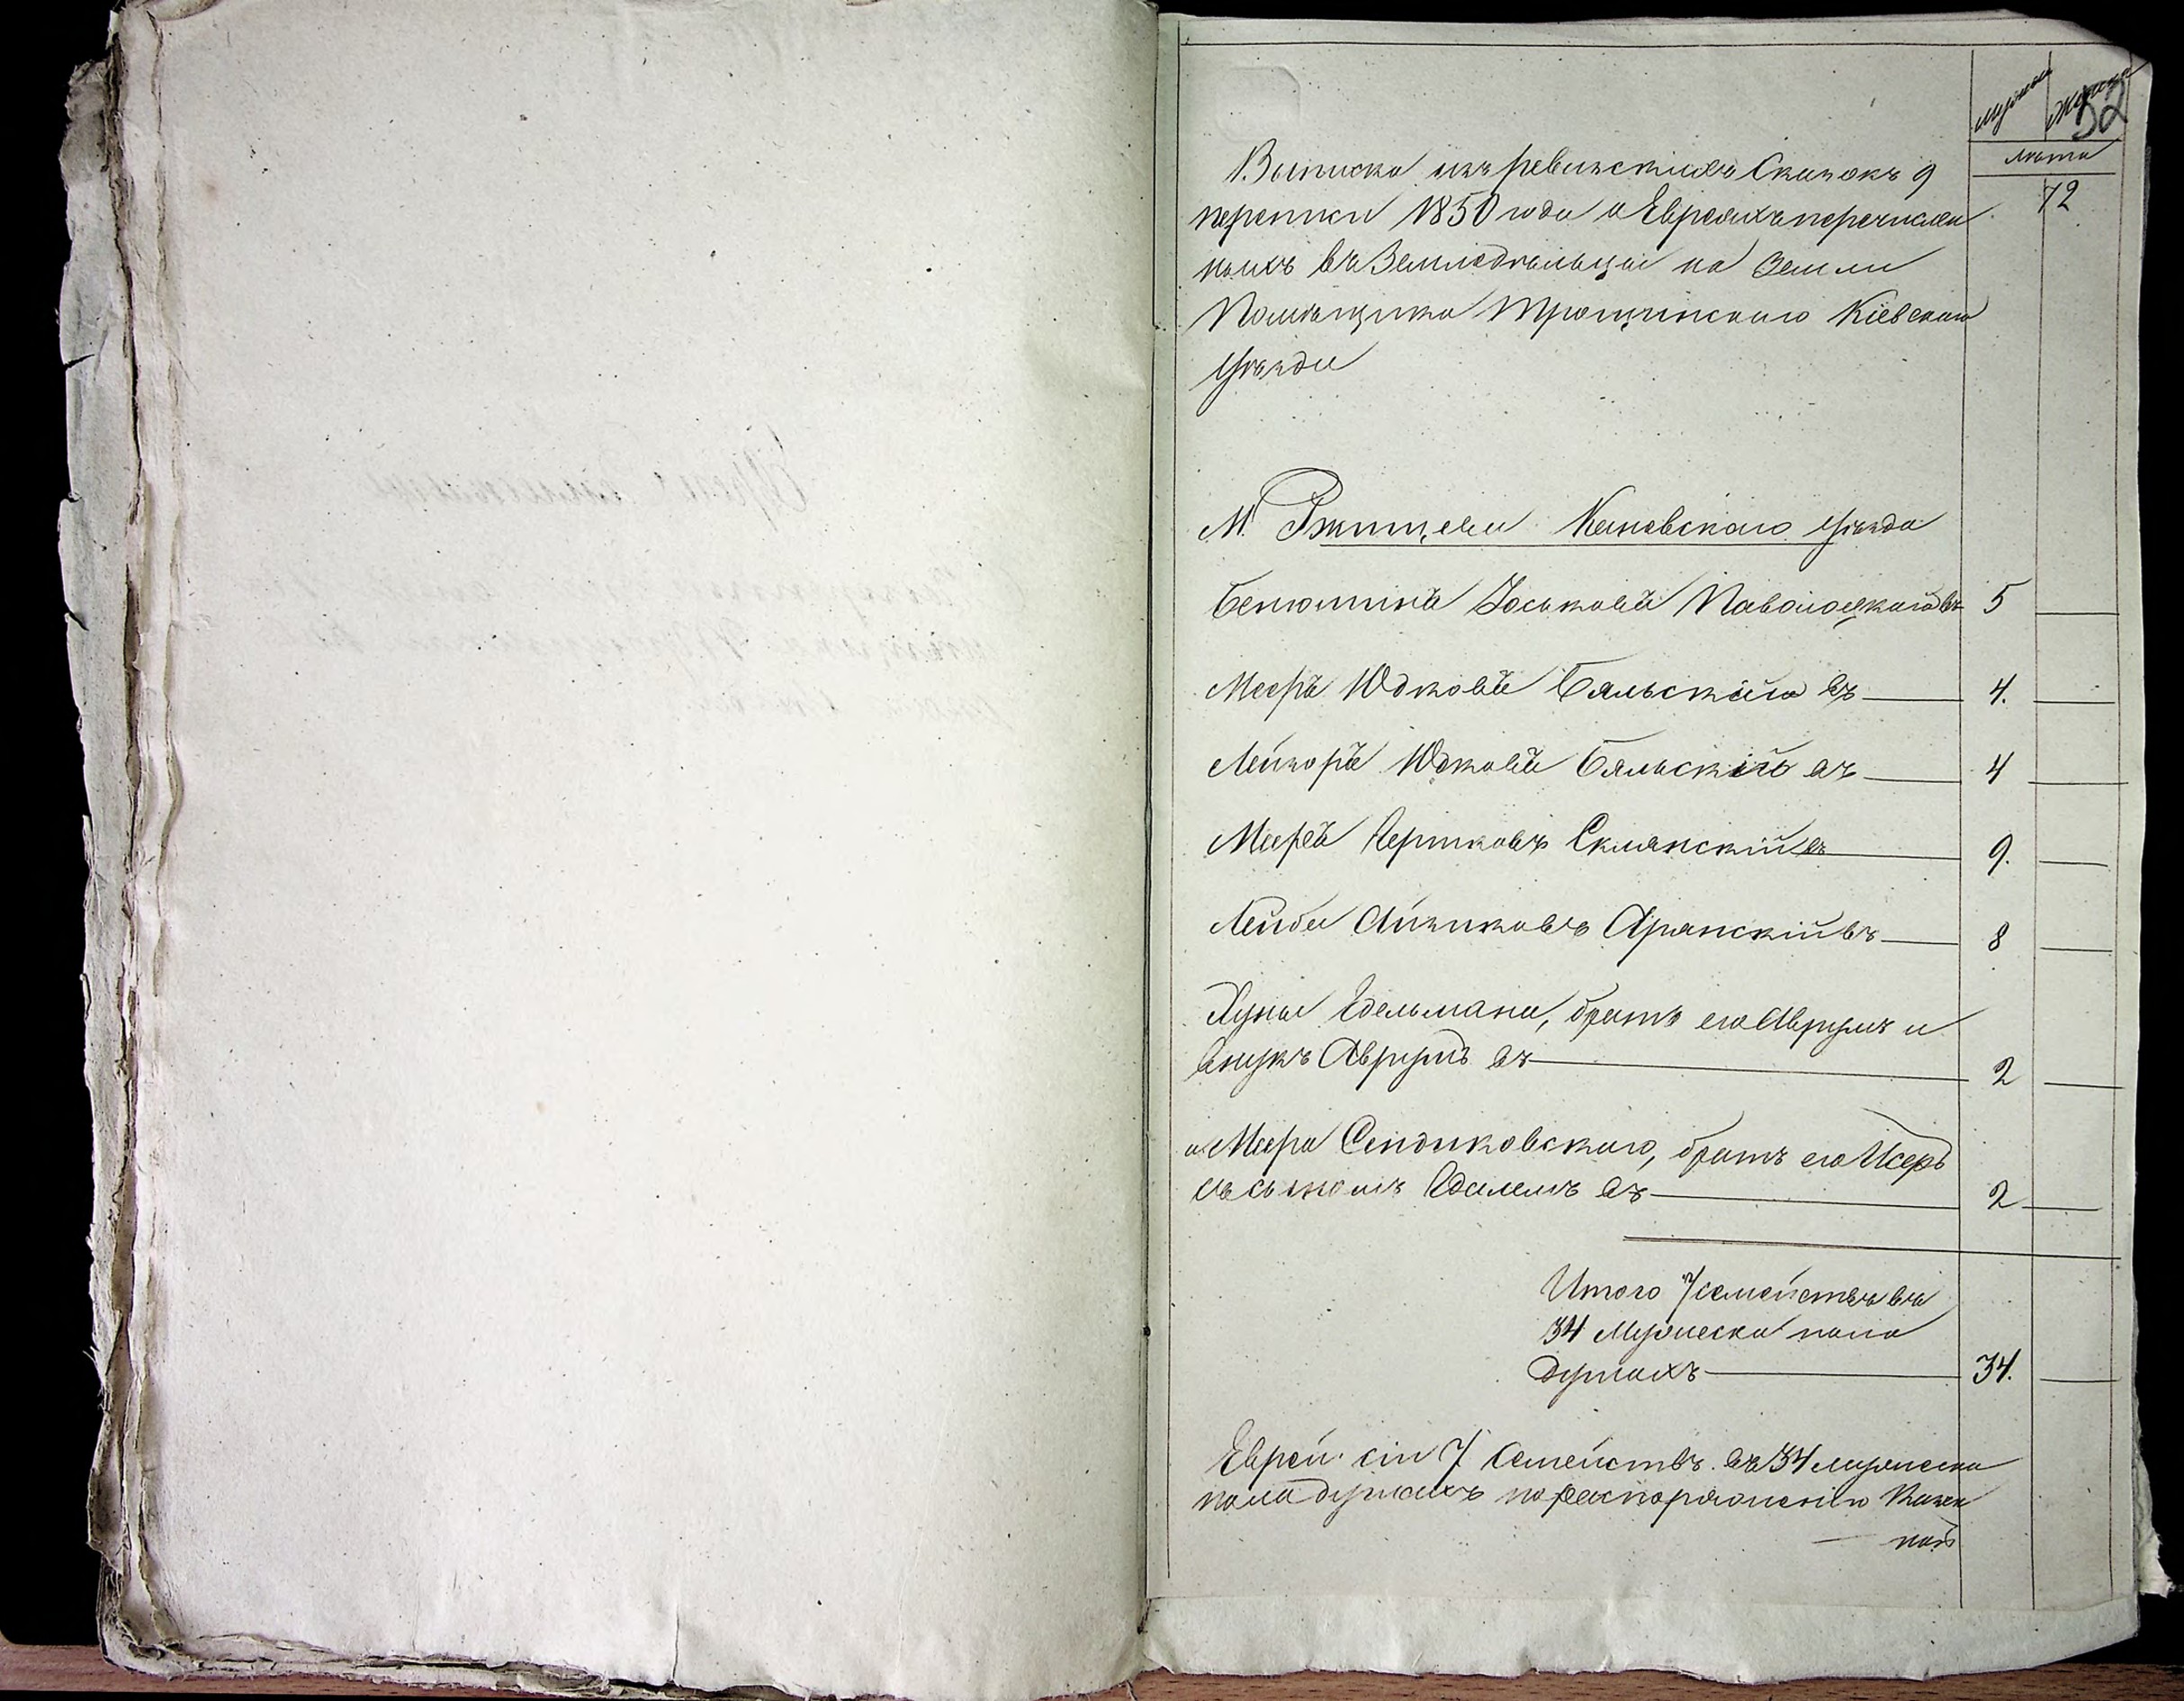 Мужеска Женска
52
лѣта
72
Выписка изъ ревизскихъ Сказокъ 9
переписи 1850 года о Евреяхъ перечислен
ныхъ въ Земледѣльцы на Земли
Помѣщика Трощинскаго Кіевскаго
Уѣзда
М. Ржищева Каневскаго Уѣзда
Беніоминъ Іоськовъ Паволоцкій въ 5
Мееръ Юдковъ Бяльскій въ 4.
Лейзоръ Юдковъ Бяльскій въ 4
Мееръ Гершковъ Склянскій въ 9.
Лейба Айзиковъ Аранскій въ 8
Хуны Эдельмана, братъ его Аврумъ и
внукъ Аврумъ въ 2
и Меера Сендиковскаго, братъ его Исеръ
съ сыномъ въ 2
Итого 7 семействъ въ
34 Мужеска пола
душахъ 34.
Евреи сіи 7 Семействъ въ 34 мужеска
пола душахъ по распоряженію Казен
ной